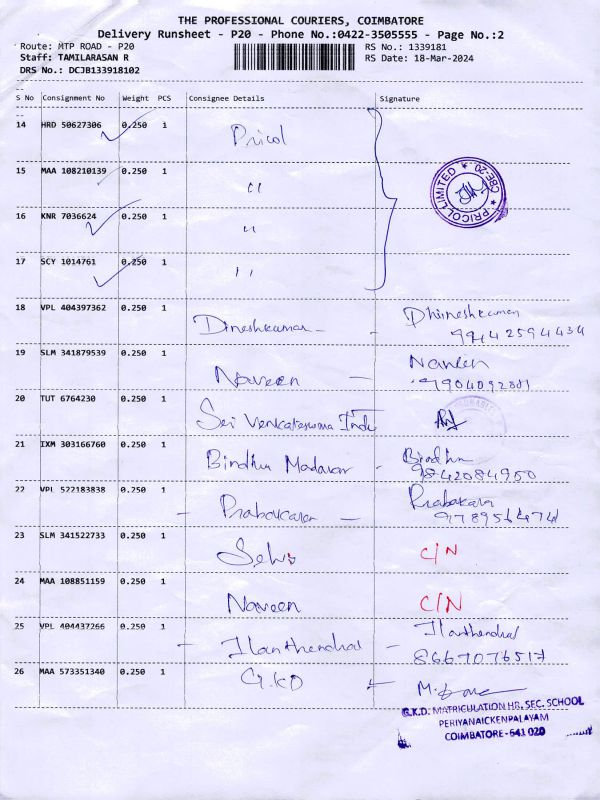 THE PROFESSIONAL COURIERS, COIMBATORE
Delivery Runsheet - P20 - Phone No.:0422-3505555 - Page No.:2
Route: MTP ROAD - P20
Staff: TAMILARASAN R
DRS No.: DCJB133918102
RS No.: 1339181
RS Date: 18-Mar-2024
S No Consignment No Weight PCS Consignee Details Signature
14 HRD 50627306 0.250 1 Pricol
PRICOL LIMITED ★ CBE-20 ★
15 MAA 108210139 0.250 1 "
16 KNR 7036624 0.250 1 "
17 SCY 1014761 0.250 1 "
18 VPL 404397362 0.250 1 Dineshkumar - - Dhineshkumar
9942594434
19 SLM 341879539 0.250 1 Naveen - Naveen
20 TUT 6764230 0.250 1 Sri Venkateswara
21 IXM 303166760 0.250 1 Bindhu Madavar - Bindhu
9842084950
22 VPL 522183838 0.250 1 - Prabakaran - Prabakara
23 SLM 341522733 0.250 1 Selvi C/N
24 MAA 108851159 0.250 1 Naveen C/N
25 VPL 404437266 0.250 1 - Ilanthendral - Ilanthendral
8667076517
26 MAA 573351340 0.250 1 G.KD
G.K.D. MATRICULATION HR. SEC. SCHOOL
PERIYANAICKENPALAYAM
COIMBATORE-641 020